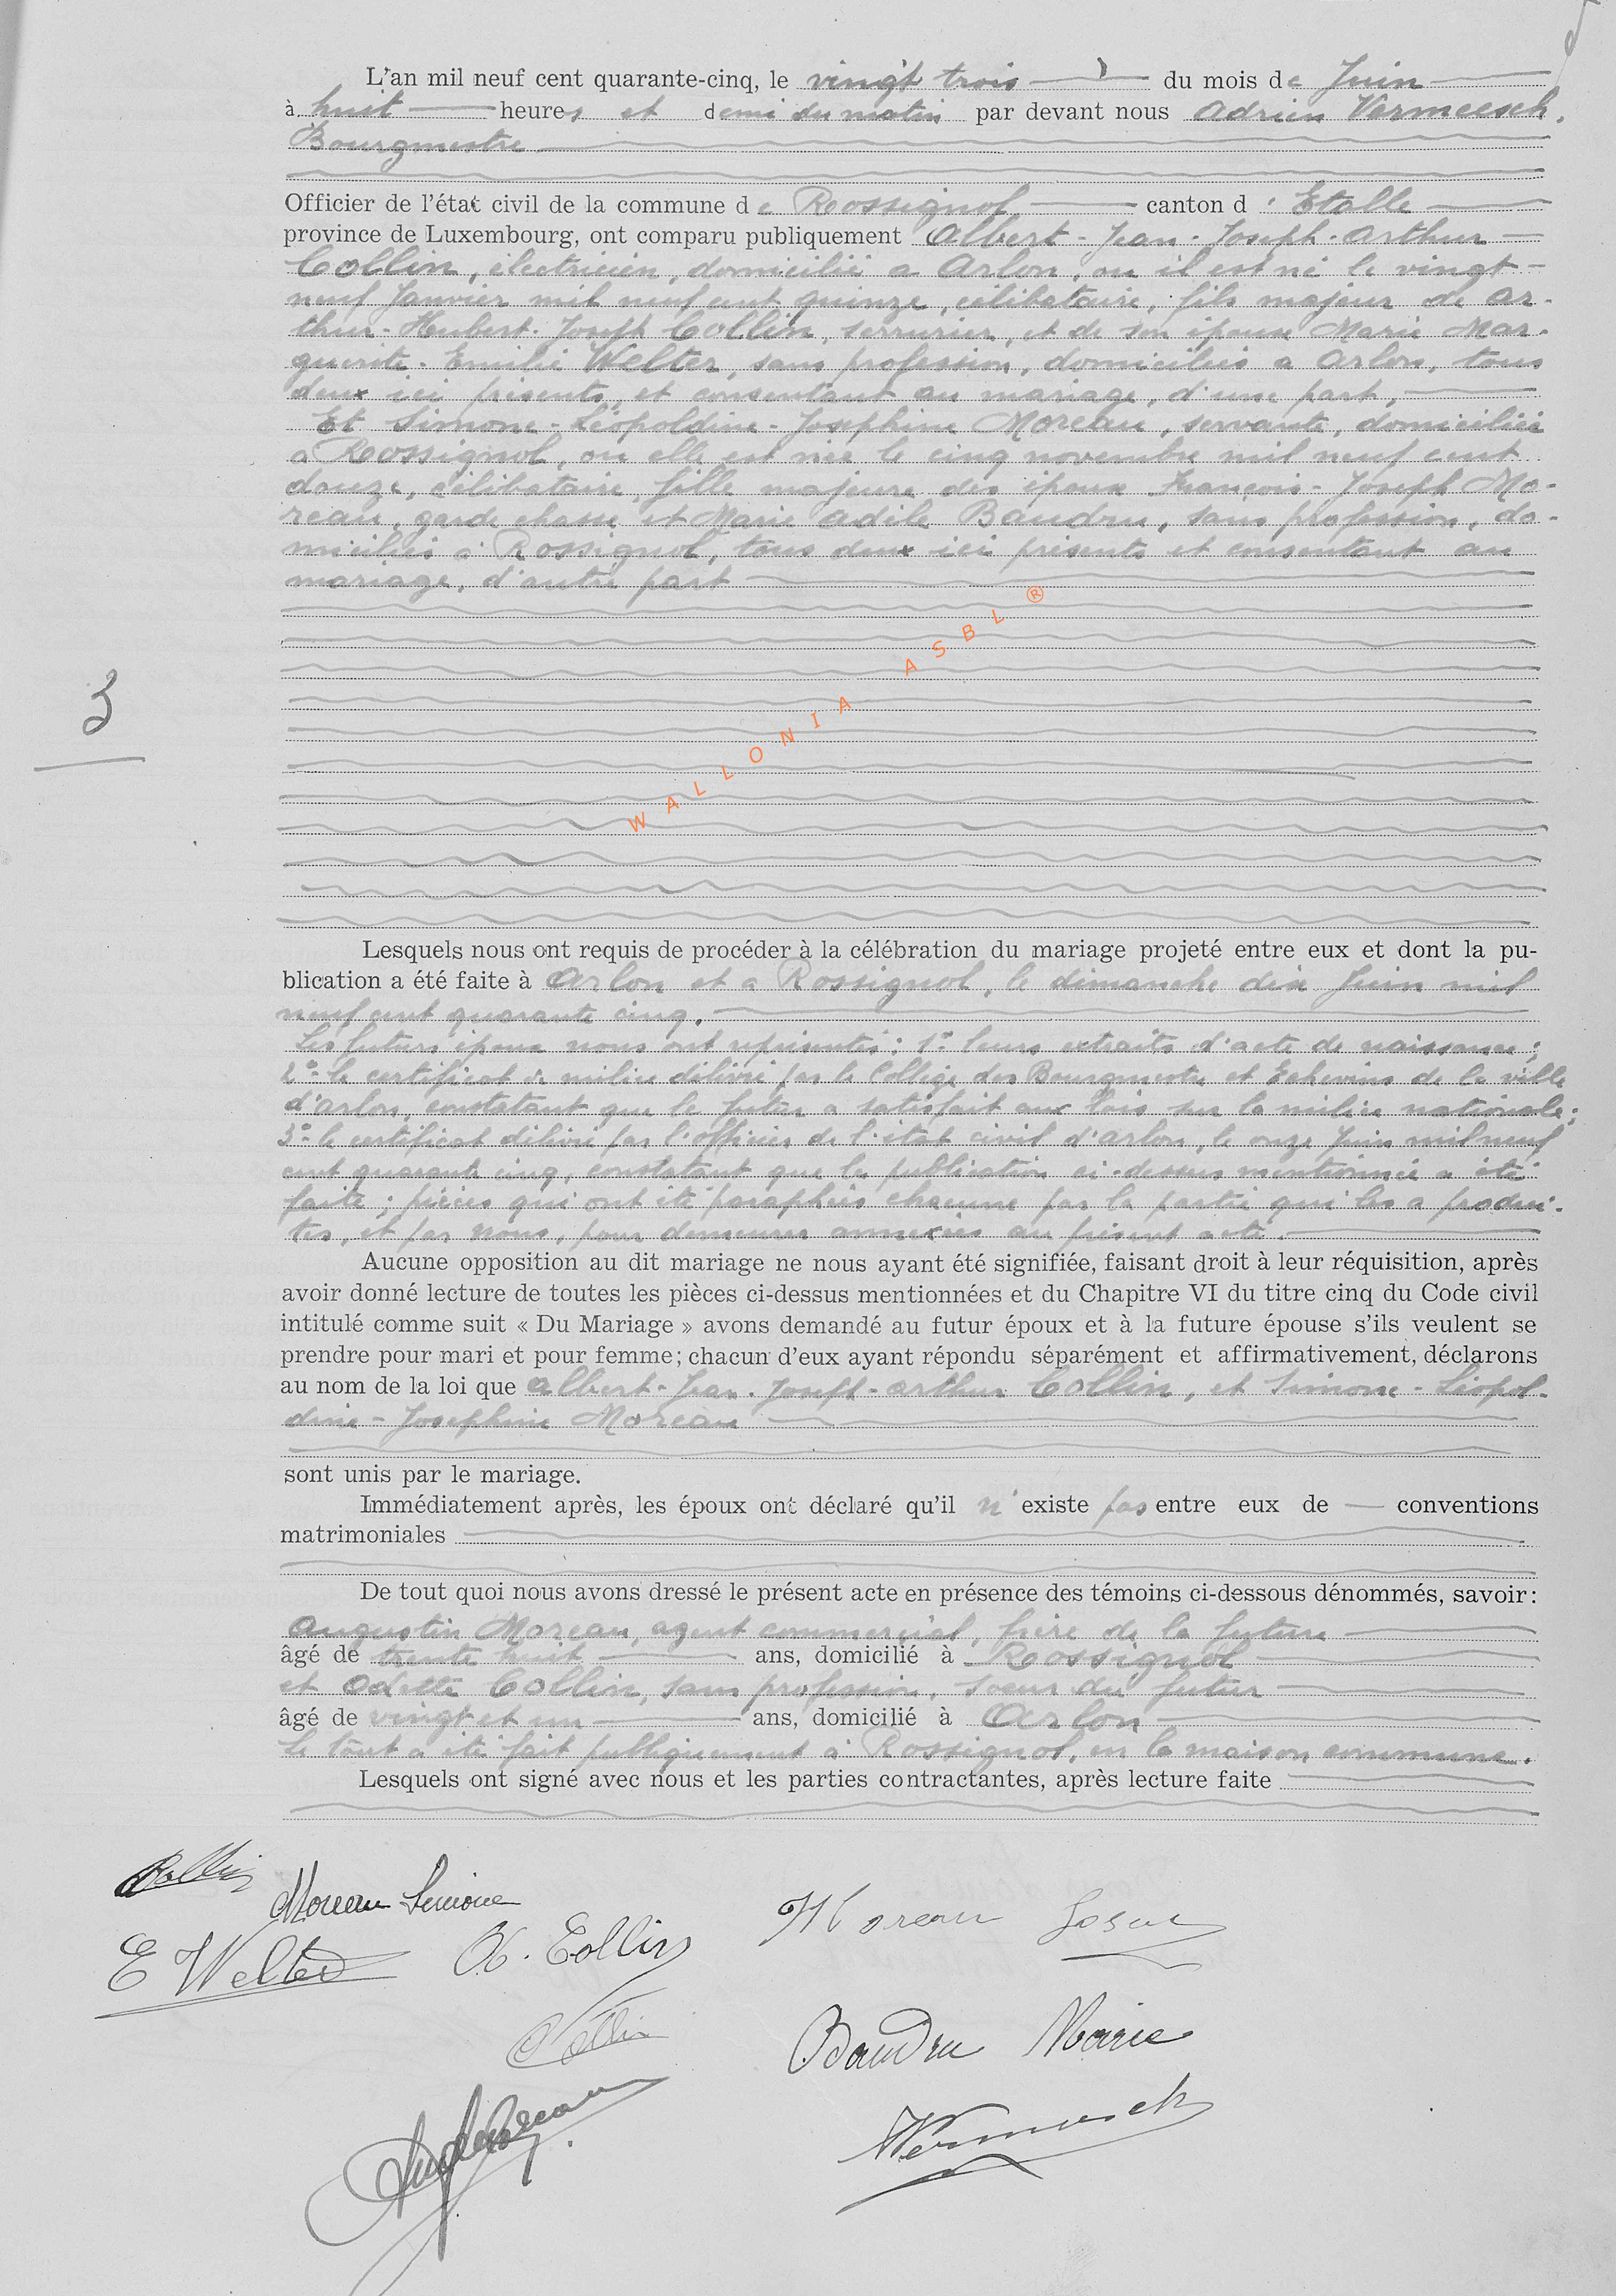 L'an mil neuf cent quarante-cinq, le vingt trois du mois de Juin
à huit heures et demi du matin par devant nous Adrien Vermeesch,
Bourgmestre
Officier de l'état civil de la commune de Rossignol canton d'Etalle
province de Luxembourg, ont comparu publiquement Albert-Jean-Joseph-Arthur
Collin, électricien, domicilié a Arlon, ou il est né le vingt-
neuf Janvier mil neuf cent quinze, célibataire, fils majeur de Ar-
thur-Hubert-Joseph Collin, serrurier, et de son épouse Marie Mar-
guerite-Emilie Welter, sans profession, domiciliés a Arlon, tous
deux ici présents et consentant au mariage, d'une part,
Et Simone-Léopoldine-Josephine Moreau, servante, domiciliée
a Rossignol, ou elle est née le cinq novembre mil neuf cent
douze, célibataire, fille majeure des époux François-Joseph Mo-
reau, garde chasse et Marie Adile Baudru, sans profession, do-
miciliés à Rossignol, tous deux ici présents et consentant au
mariage, d'autre part
WALLONIA ASBL ®
3
Lesquels nous ont requis de procéder à la célébration du mariage projeté entre eux et dont la pu-
blication a été faite à Arlon et a Rossignol, le dimanche dix Juin mil
neuf cent quarante cinq.
Les futurs époux nous ont représentés: 1° leurs extraits d'acte de naissance;
2° le certificat de milice délivré par le Collège des Bourgmestre et Echevins de la ville
d'Arlon, constatant que le futur a satisfait aux lois sur la milice nationale;
3° le certificat délivré par l'officier de l'état civil d'Arlon, le onze Juin mil neuf
cent quarante cinq, constatant que la publication ci-dessus mentionnée a été
faite; pièces qui ont été paraphées chacune par la partie qui les a produi-
tes, et par nous, pour demeurer annexées au présent acte.
Aucune opposition au dit mariage ne nous ayant été signifiée, faisant droit à leur réquisition, après
avoir donné lecture de toutes les pièces ci-dessus mentionnées et du Chapitre VI du titre cinq du Code civil
intitulé comme suit « Du Mariage » avons demandé au futur époux et à la future épouse s'ils veulent se
prendre pour mari et pour femme; chacun d'eux ayant répondu séparément et affirmativement, déclarons
au nom de la loi que Albert-Jean-Joseph-Arthur Collin, et Simone-Léopol-
dine-Josephine Moreau
sont unis par le mariage.
Immédiatement après, les époux ont déclaré qu'il n'existe pas entre eux de conventions
matrimoniales
De tout quoi nous avons dressé le présent acte en présence des témoins ci-dessous dénommés, savoir:
Augustin Moreau, agent commercial, frère de la future
âgé de trente huit ans, domicilié à Rossignol
et Odette Collin, sans profession, soeur du futur
âgé de vingt et un ans, domicilié à Arlon
Le tout a été fait publiquement à Rossignol, en la maison commune.
Lesquels ont signé avec nous et les parties contractantes, après lecture faite
Collin
Moreau Simone
Moreau
E Welter
Collin
Collin
Baudru Marie
Vermeesch